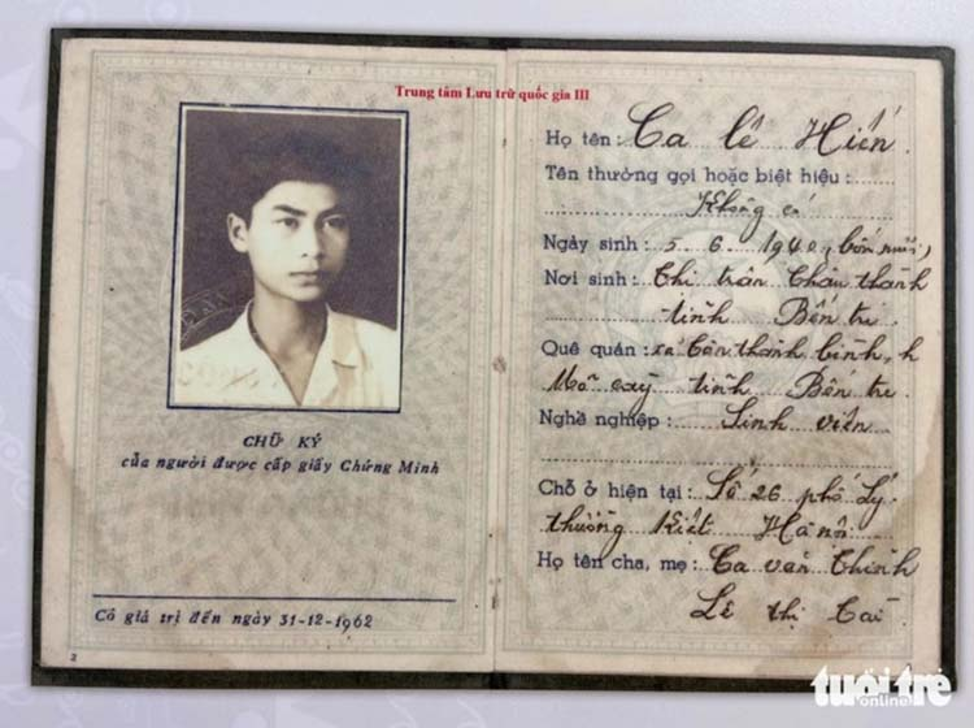 Trung tâm Lưu trữ quốc gia III
CHỮ KÝ
của người được cấp giấy Chứng Minh
Có giá trị đến ngày 31-12-1962
2
Họ tên: Ca lê Hiến
Tên thường gọi hoặc biệt hiệu:
Không có
Ngày sinh: 5. 6. 1940, bốn mươi)
Nơi sinh: Thị trấn Châu thành
tỉnh Bến tre
Quê quán: xã thành bình, h
Mỏ cày tỉnh Bến tre
Nghề nghiệp: Sinh viên
Chỗ ở hiện tại: Số 26 phố Lý
thường Kiệt Hà nội
Họ tên cha, mẹ: Ca văn Thỉnh
Lê thị
tuổi trẻ
online